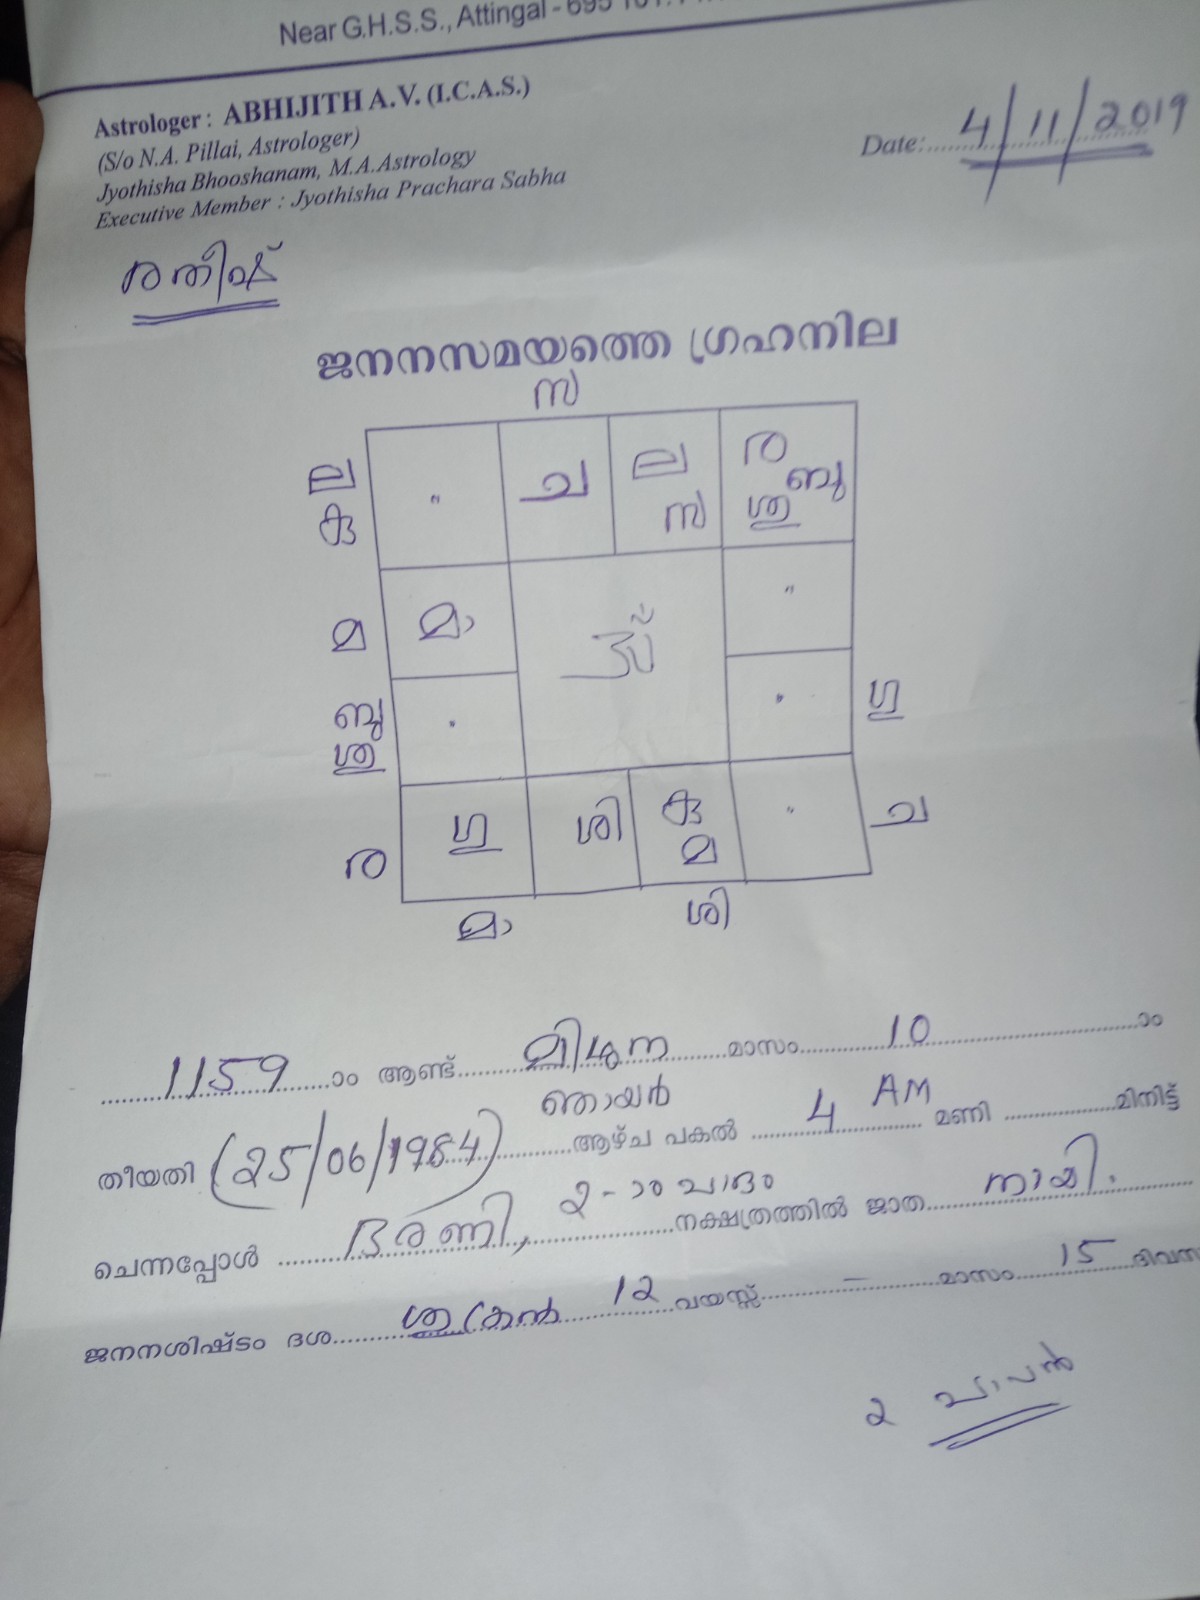 Near G.H.S.S., Attingal - 695 101.
Astrologer : ABHIJITH A.V. (I.C.A.S.)
(S/o N.A. Pillai, Astrologer)
Jyothisha Bhooshanam, M.A.Astrology
Executive Member : Jyothisha Prachara Sabha
Date:..... 4/11/2019
രതീഷ്
ജനനസമയത്തെ ഗ്രഹനില
സ
ല
കു
"
ച
ല
സ
ര
ബു
ശു
മ
മാ
"
ബു
ശു
"
"
ഗു
ര
ഗു
ശി
കു
മ
"
ച
മാ
ശി
1159 ാം ആണ്ട് മിഥുന മാസം 10 ാം
ഞായർ
തീയതി (25/06/1984) ആഴ്ച പകൽ 4 AM മണി മിനിട്ട്
ചെന്നപ്പോൾ ഭരണി, 2-ാം പാദം നക്ഷത്രത്തിൽ ജാത നായി.
ജനനശിഷ്ടം ദശ ശുക്രൻ 12 വയസ്സ് – മാസം 15
2 പാപൻ